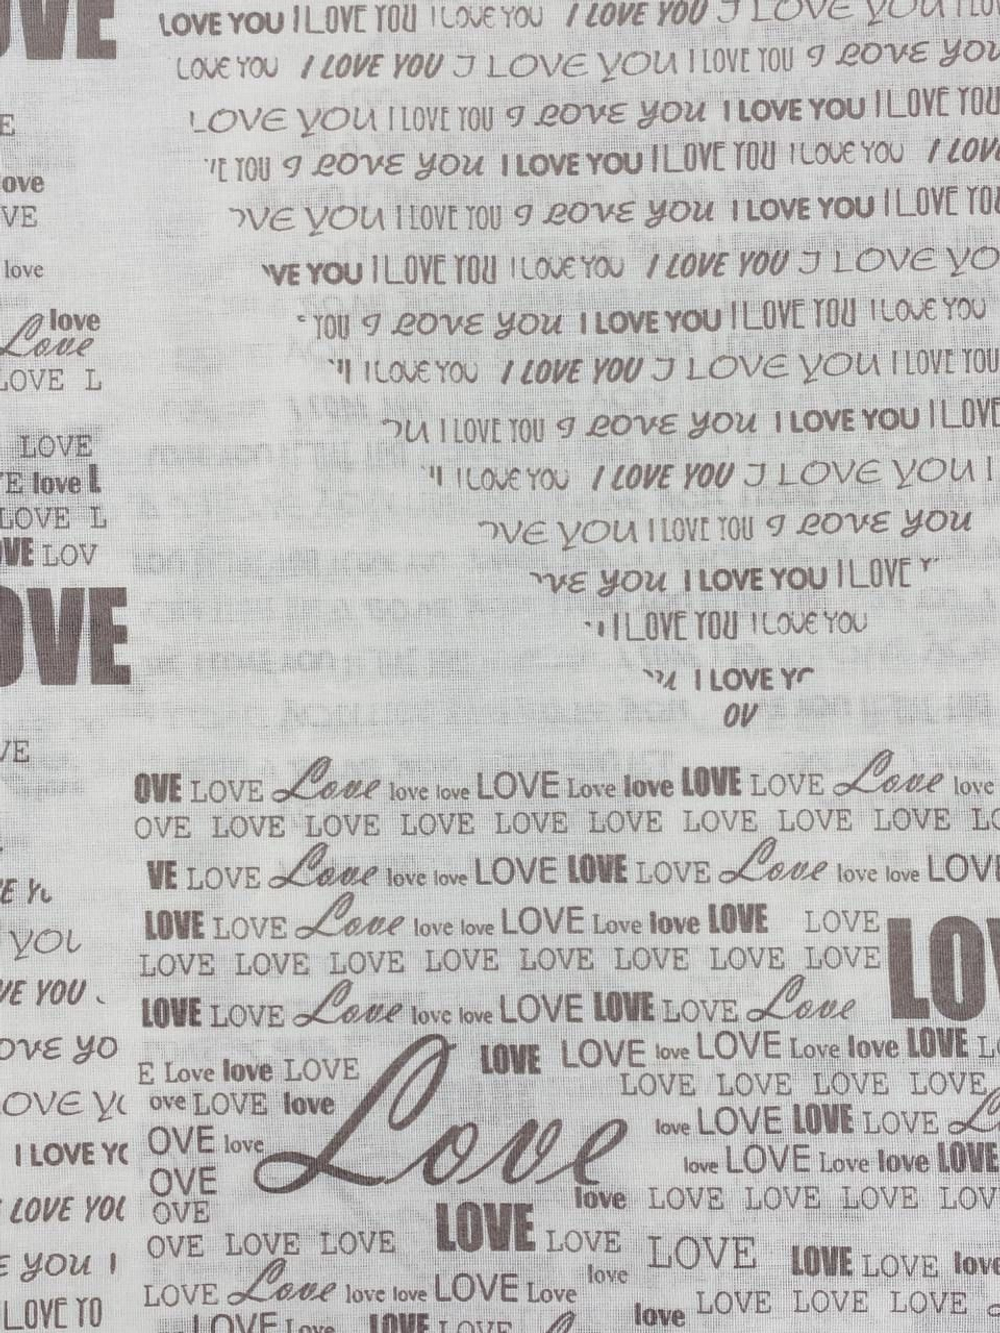 OVE
LOVE YOU I LOVE YOU I LOVE YOU I LOVE YOU I LOVE YOU I LOV
LOVE YOU I LOVE YOU I LOVE YOU I LOVE YOU I LOVE YOU
LOVE YOU I LOVE YOU I LOVE YOU I LOVE YOU I LOVE YOU
E
E YOU I LOVE YOU I LOVE YOU I LOVE YOU I LOVE YOU I LOV
ove
VE
VE YOU I LOVE YOU I LOVE YOU I LOVE YOU I LOVE YOU
love
VE YOU I LOVE YOU I LOVE YOU I LOVE YOU I LOVE YO
love
YOU I LOVE YOU I LOVE YOU I LOVE YOU I LOVE YOU
Love
LOVE L
I LOVE YOU I LOVE YOU I LOVE YOU I LOVE YOU
LOVE
U I LOVE YOU I LOVE YOU I LOVE YOU I LOVE
E love L
I LOVE YOU I LOVE YOU I LOVE YOU I
LOVE L
VE YOU I LOVE YOU I LOVE YOU
VE LOV
VE YOU I LOVE YOU I LOVE Y
OVE
I LOVE YOU I LOVE YOU
I LOVE YO
OV
VE
OVE LOVE Love love love LOVE Love love LOVE LOVE Love love
OVE LOVE LOVE LOVE LOVE LOVE LOVE LOVE LOVE LO
VE LOVE Love love love LOVE LOVE LOVE Love love love LOVE
E YO
LOVE LOVE Love love love LOVE Love love LOVE LOVE
YOU
LOVE LOVE LOVE LOVE LOVE LOVE LOVE LOVE
LOV
VE YOU
LOVE LOVE Love love love LOVE LOVE LOVE Love
OVE YO
LOVE LOVE love LOVE Love love LOVE LO
E Love love LOVE
Love
LOVE LOVE LOVE LOVE
LOVE YO
ove LOVE love
love LOVE LOVE LOVE L
I LOVE YO
OVE love
love LOVE Love love LOVE
OVE
love LOVE LOVE LOVE LOV
LOVE YOU
OVE
LOVE LOVE
OVE LOVE LOVE
LOVE LOVE LOVE love
E YOU I
love
LOVE Love love love LOVE Love
LOVE YO
love LOVE LOVE LOVE
LOVE Love LOVE LOVE